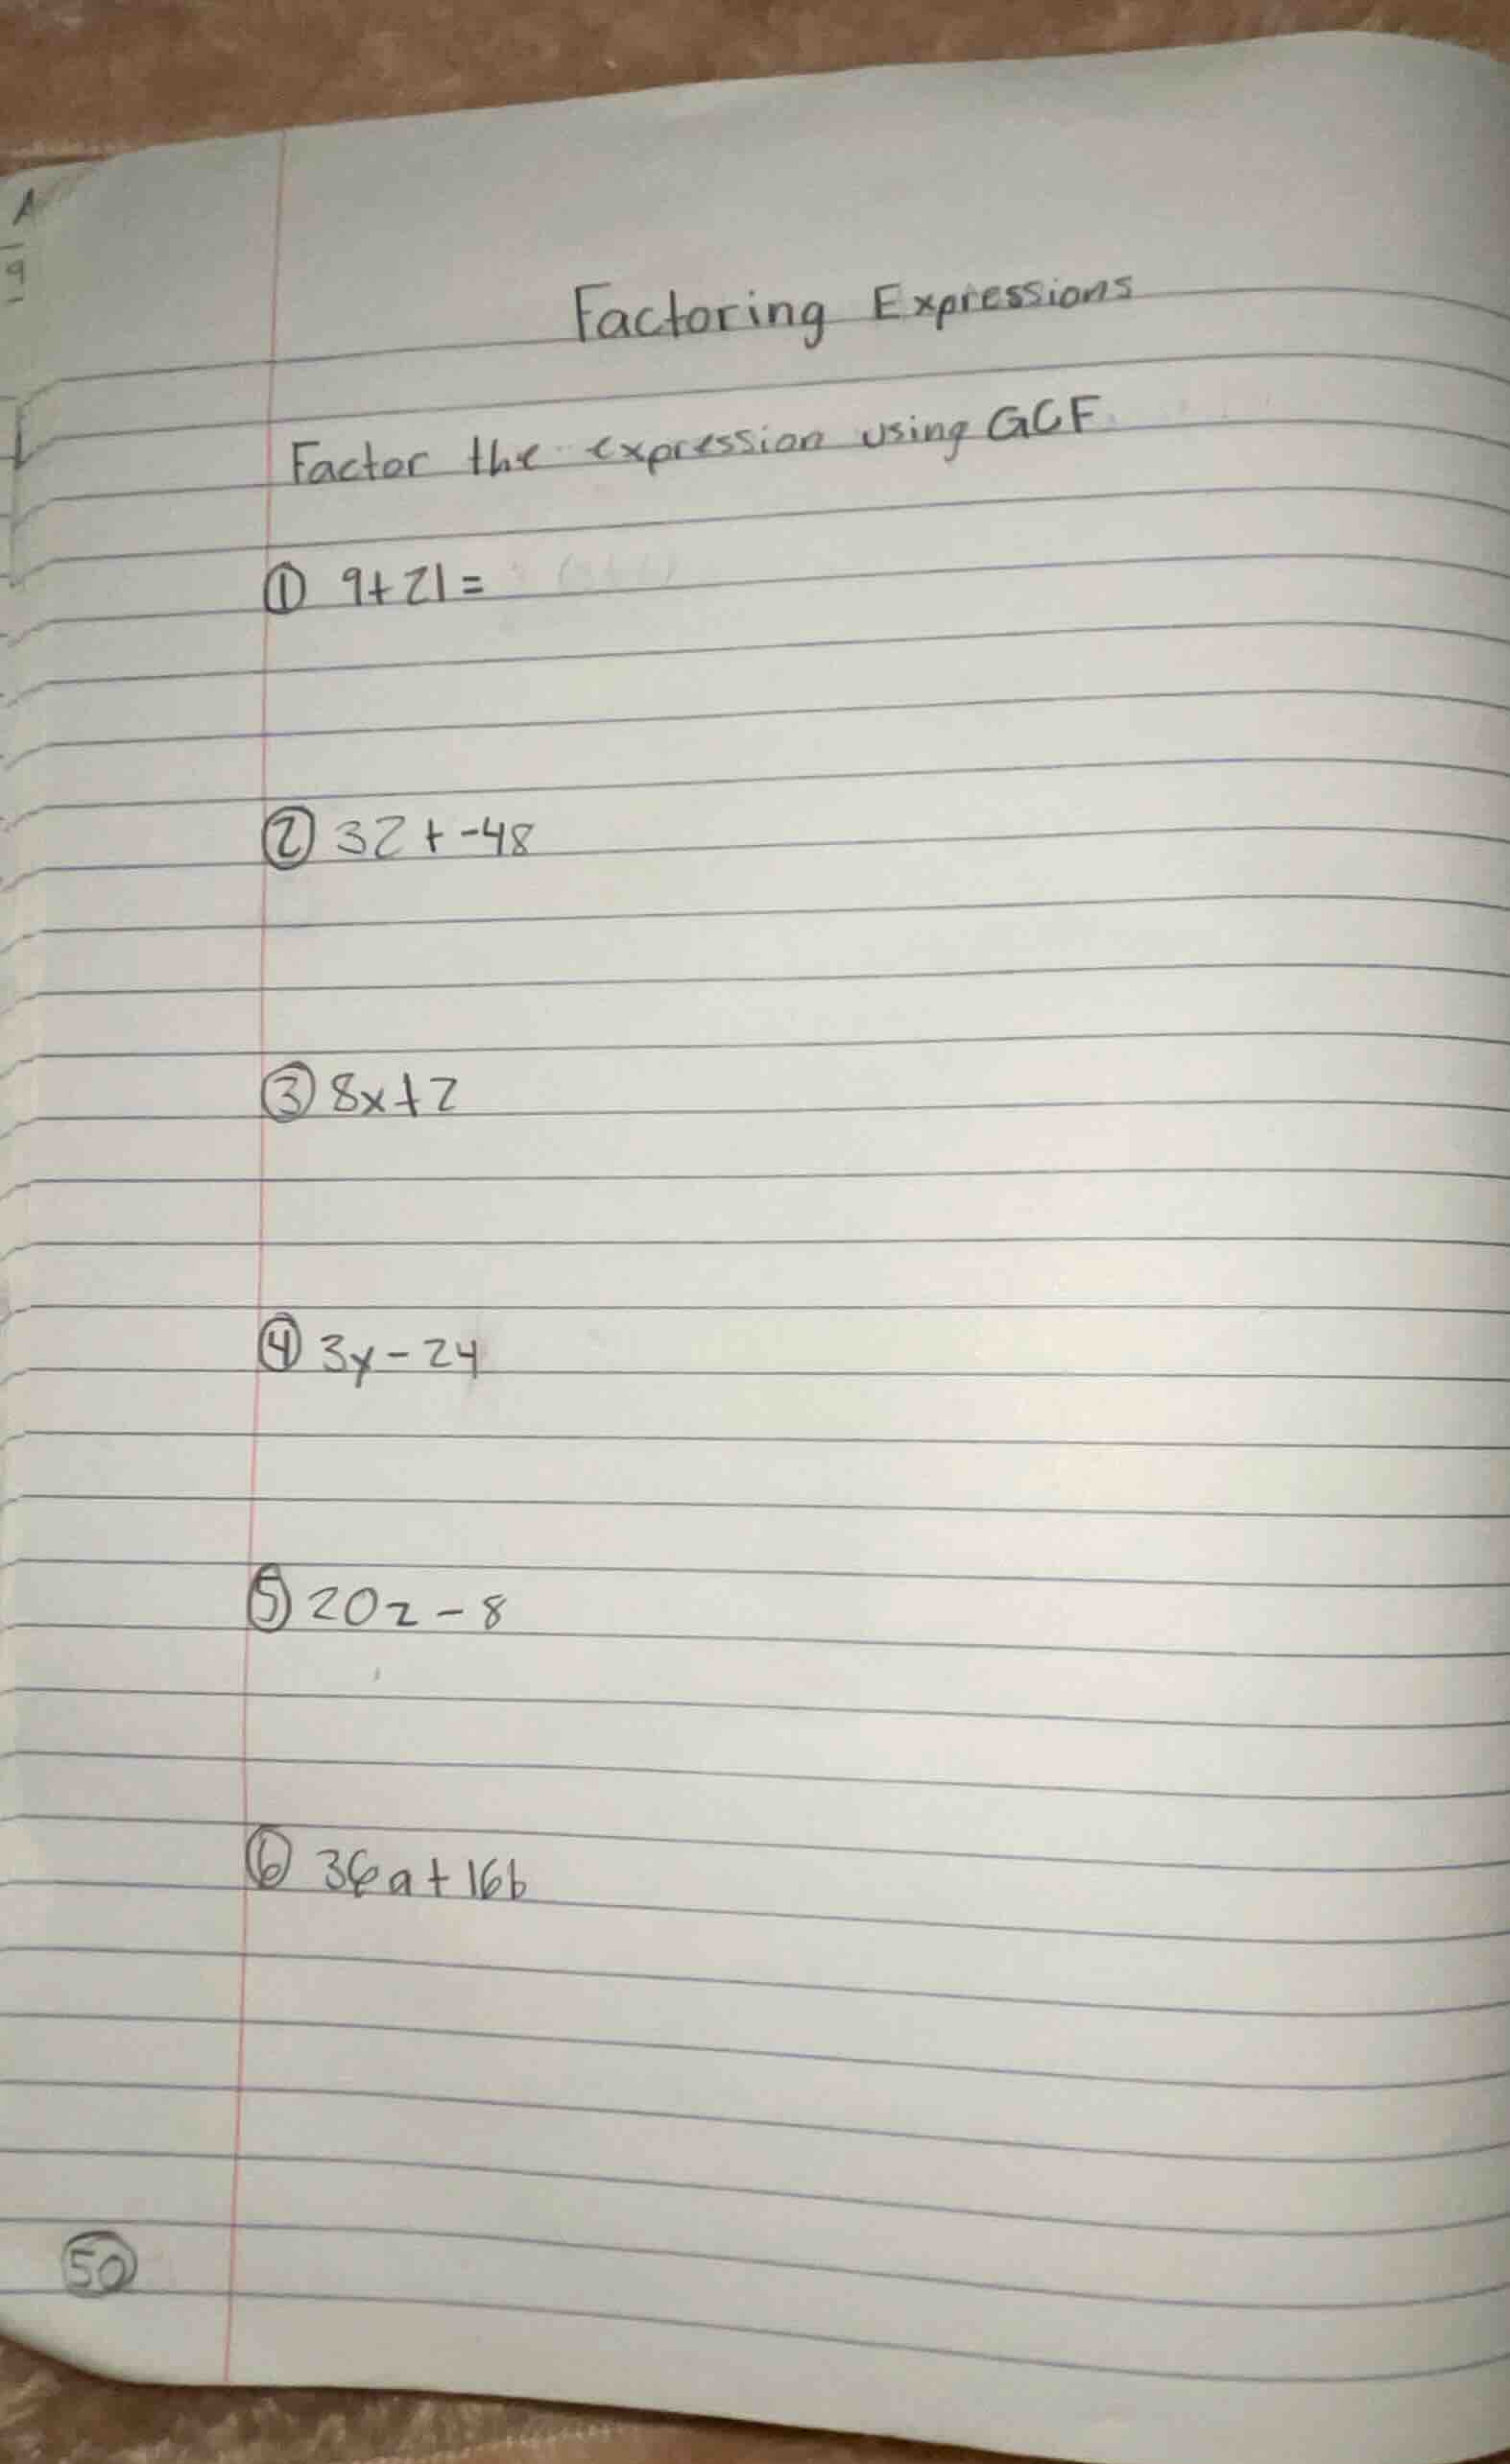 Factoring Expressions
Factor the expression using GCF
① 9+21=
② 32+-48
③ 8x+2
④ 3y-24
⑤ 20z-8
⑥ 36a+16b
50